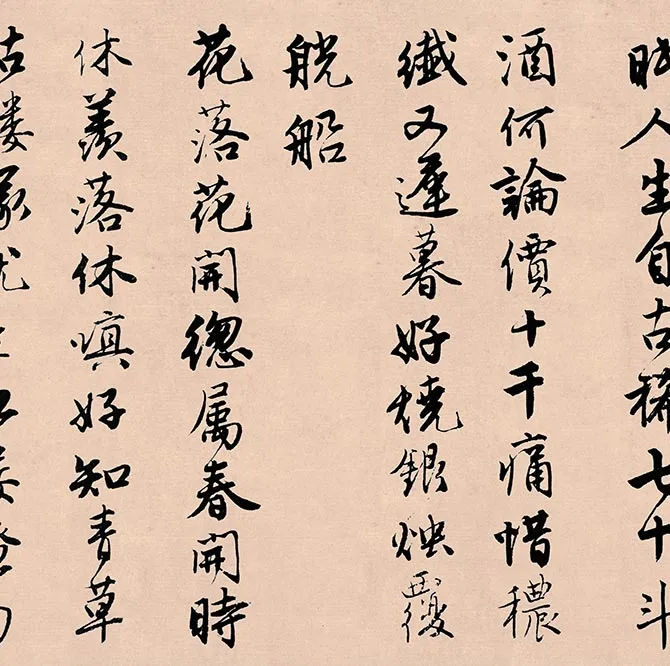 人生自古稀七十斗
酒何論價十千痛惜穠
纖又遲暮好燒銀燭覆
觥船
花落花開緫屬春開時
休羨落休嗔好知青草